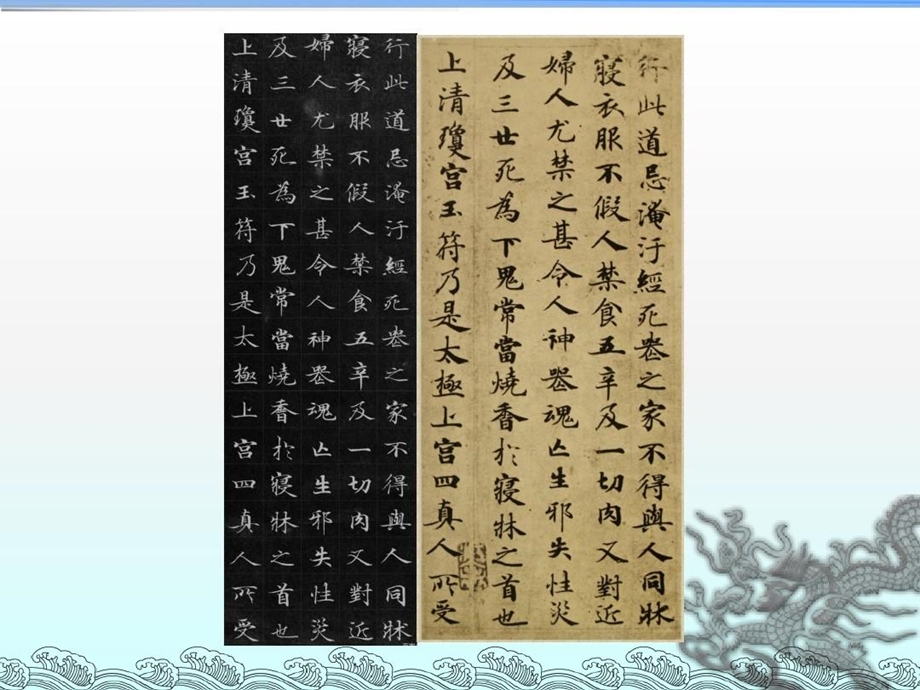 行此道忌淹汙經死喪之家不得與人同牀
寢衣服不假人禁食五辛及一切肉又對近
婦人尤禁之甚令人神喪魂亡生邪失性災
及三世死為下鬼常當燒香於寢牀之首也
上清瓊宮玉符乃是太極上宮四真人所受
行此道忌淹汙經死喪之家不得與人同牀
寢衣服不假人禁食五辛及一切肉又對近
婦人尤禁之甚令人神喪魂亡生邪失性災
及三世死為下鬼常當燒香於寢牀之首也
上清瓊宮玉符乃是太極上宮四真人所受